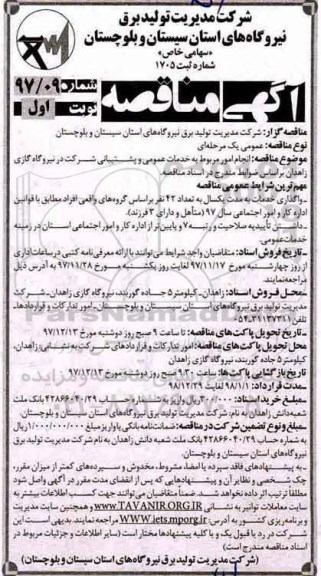 شرکت مدیریت تولید برق
نیروگاه های استان سیستان و بلوچستان
«سهامی خاص»
شماره ثبت ۱۷۰۵
آگهی مناقصه
شماره ۹۷/۰۹
نوبت اول
مناقصه گزار: شرکت مدیریت تولید برق نیروگاه‌های استان سیستان و بلوچستان
نوع مناقصه: عمومی یک مرحله‌ای
موضوع مناقصه: انجام امور مربوط به خدمات عمومی و پشتیبانی شرکت در نیروگاه گازی
زاهدان براساس ضوابط مندرج در اسناد مناقصه.
مهم‌ترین شرایط عمومی مناقصه
ـ واگذاری خدمات به مدت یکسال به تعداد ۴۲ نفر براساس گروه‌های واقعی افراد مطابق با قوانین
اداره کار و امور اجتماعی سال ۹۷ (متأهل و دارای ۲ فرزند).
ـ داشتن تأییدیه صلاحیت و رتبه ۷ و پایین‌تر از اداره کار و امور اجتماعی استان در زمینه
خدمات عمومی.
ـ تاریخ فروش اسناد: متقاضیان واجد شرایط می‌توانند با ارائه معرفی‌نامه کتبی در ساعات اداری
از روز چهارشنبه مورخ ۹۷/۱۱/۱۷ لغایت روز یکشنبه مورخ ۹۷/۱۱/۲۸ به آدرس ذیل
مراجعه نمایند.
ـ محل فروش اسناد: زاهدان ـ کیلومتر ۵ جاده گوربند، نیروگاه گازی زاهدان ـ شرکت
مدیریت تولید برق نیروگاه‌های استان سیستان و بلوچستان ـ امور تدارکات و قراردادها ـ
تلفن ۰۵۴-۳۱۱۳۷۳۱۱
ـ تاریخ تحویل پاکت‌های مناقصه: تا ساعت ۹ صبح روز دوشنبه مورخ ۹۷/۱۲/۱۳
محل تحویل پاکت‌های مناقصه: امور تدارکات و قراردادهای شرکت به نشانی: زاهدان،
کیلومتر ۵ جاده گوربند، نیروگاه گازی زاهدان
تاریخ بازگشایی پاکت‌ها: ساعت ۹:۳۰ صبح روز دوشنبه مورخ ۹۷/۱۲/۱۳
ـ مدت قرارداد: ۹۸/۱/۱ لغایت ۹۸/۱۲/۲۹
ـ مبلغ خرید اسناد: ۳۰۰/۰۰۰ ریال واریز به شماره حساب ۴۲۸۶۶۰۴۰/۲۹ بانک ملت
شعبه دانش زاهدان به نام شرکت مدیریت تولید برق نیروگاه‌های استان سیستان و بلوچستان.
ـ مبلغ و نوع تضمین شرکت در مناقصه: ضمانت‌نامه بانکی یا واریز مبلغ ۱/۰۰۰/۰۰۰/۰۰۰ ریال
به شماره حساب ۴۲۸۶۶۰۴۰/۲۹ بانک ملت شعبه دانش زاهدان به نام شرکت مدیریت تولید برق
نیروگاه‌های استان سیستان و بلوچستان.
ـ به پیشنهادهای فاقد سپرده یا امضا، مشروط، مخدوش و سپرده‌های کمتر از میزان مقرر،
چک شخصی و نظایر آن و پیشنهادهایی که پس از انقضای مدت مقرر در آگهی واصل شود
مطلقاً ترتیب اثر داده نخواهد شد. ضمناً متقاضیان می‌توانند جهت کسب اطلاعات بیشتر به
سایت معاملات توانیر به نشانی WWW.TAVANIR.ORG.IR و همچنین سایت مدیریت
و برنامه‌ریزی کشور به آدرس: WWW.iets.mporg.ir مراجعه نمایند. بدیهی است این
شرکت در رد یا قبول یک و یا کلیه پیشنهادها مختار است (سایر اطلاعات و جزئیات مربوط در
اسناد مناقصه مندرج است)
(شرکت مدیریت تولید برق نیروگاه‌های استان سیستان و بلوچستان)